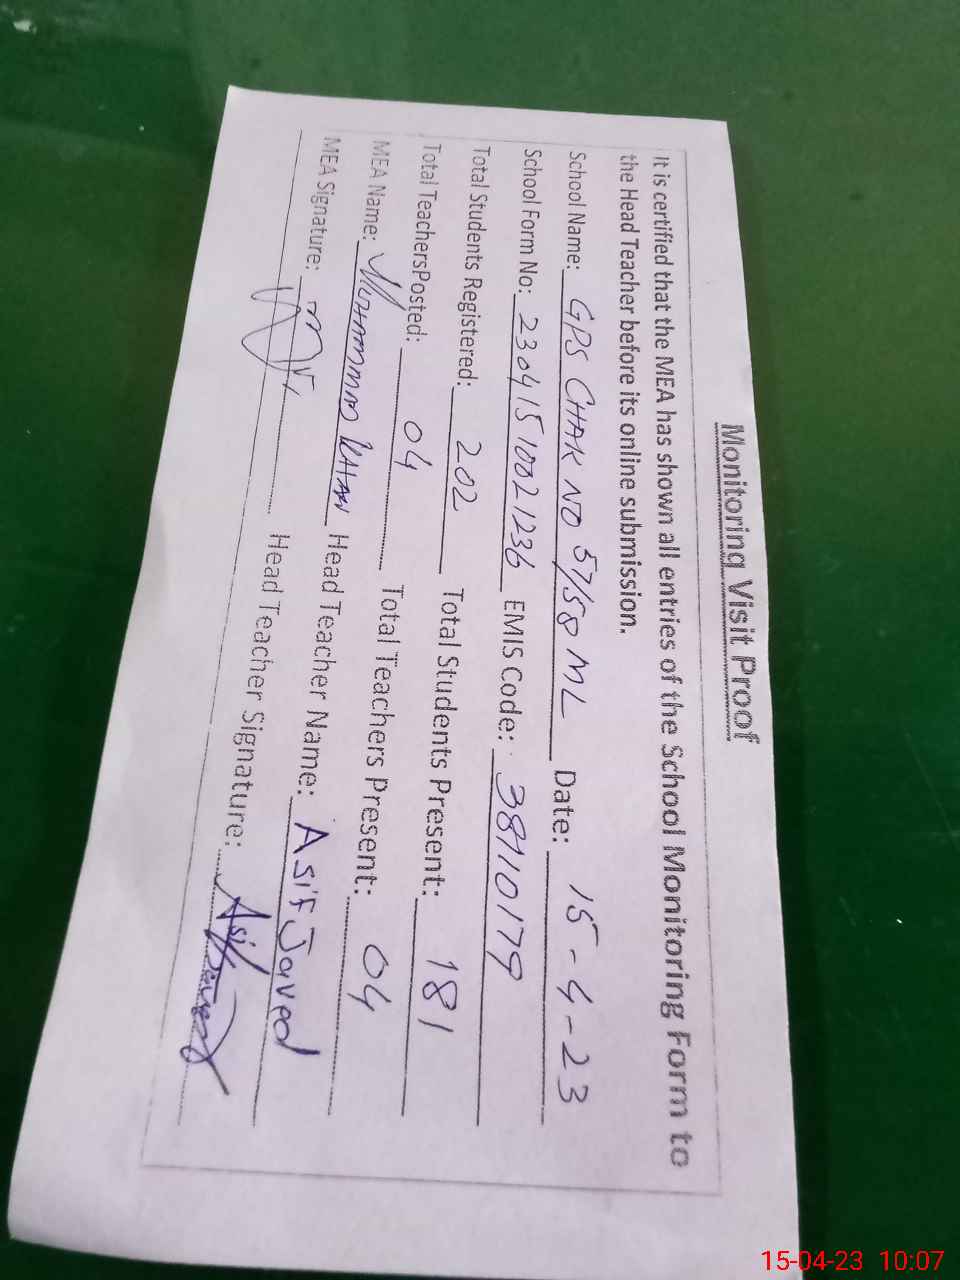 Monitoring Visit Proof
It is certified that the MEA has shown all entries of the School Monitoring Form to
the Head Teacher before its online submission.
School Name: GPS CHAK NO 57/58 ML Date: 15-4-23
School Form No: 23041510021236 EMIS Code: 38110179
Total Students Registered: 202 Total Students Present: 181
Total TeachersPosted: 04 Total Teachers Present: 04
MEA Name: Muhammad Khan Head Teacher Name: Asif Javed
MEA Signature: Head Teacher Signature: Asif Javed
15-04-23 10:07